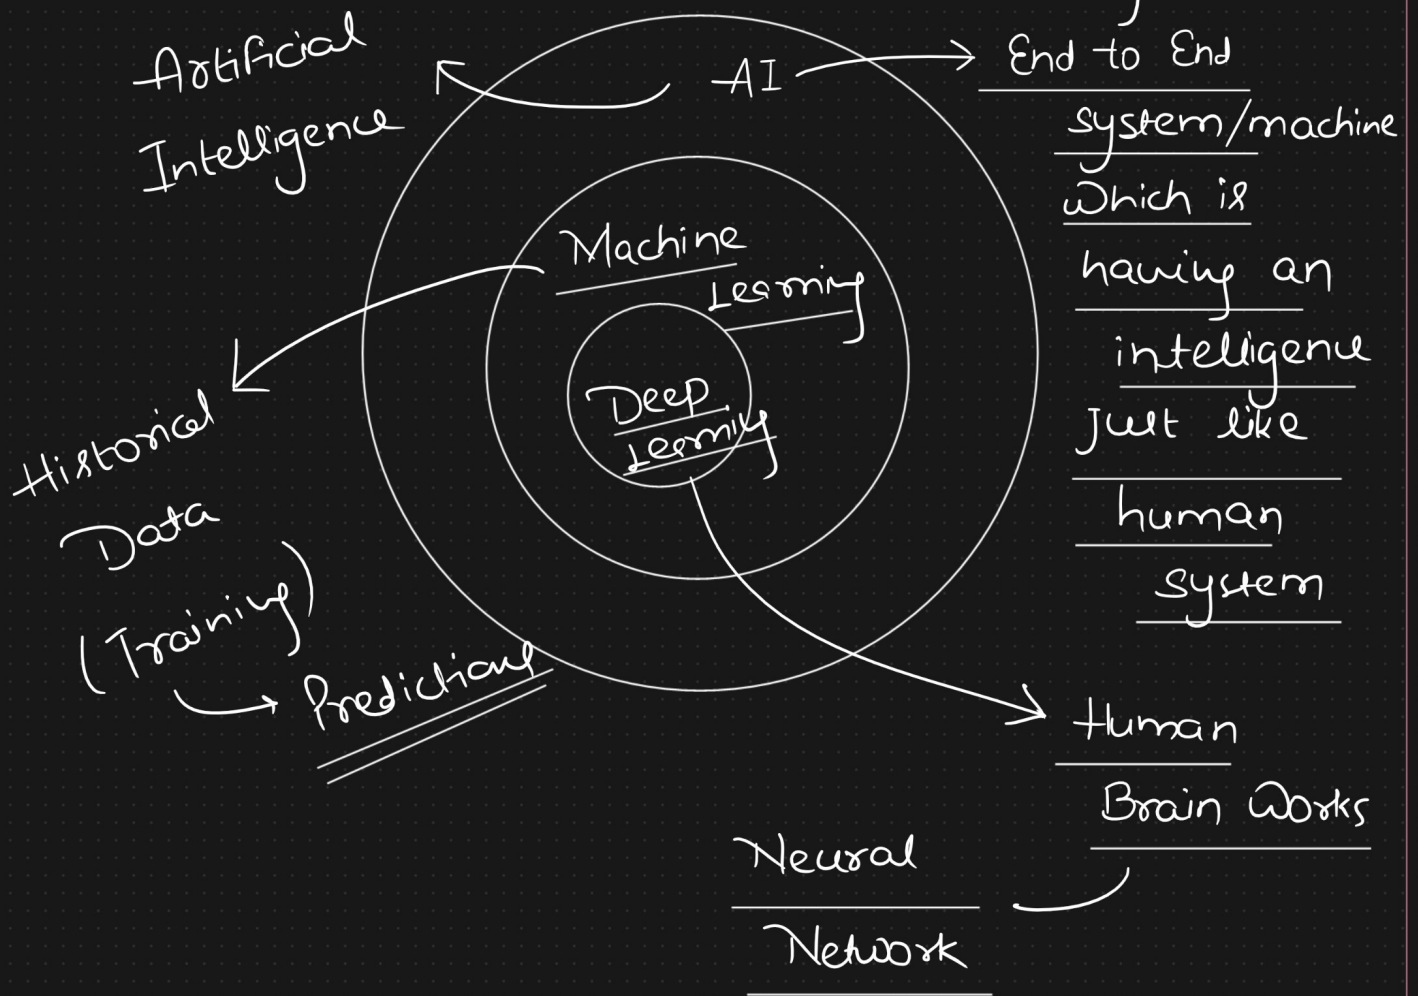 Artificial
Intelligence
AI
End to End
system/machine
which is
having an
intelligence
Just like
human
system
Machine
Learning
Deep
Learning
Historical
Data
(Training)
Predictions
Human
Brain Works
Neural
Network